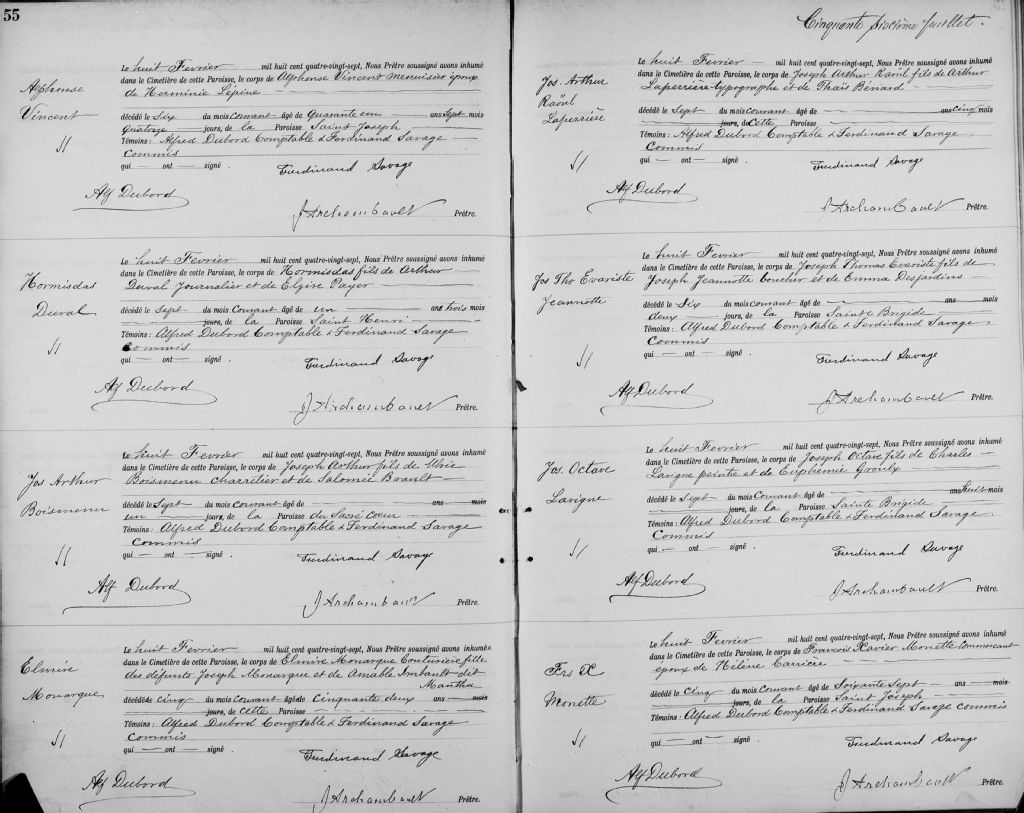 55
Alphonse
Vincent
Le huit Fevrier mil huit cent quatre-vingt-sept, Nous Prêtre soussigné avons inhumé
dans le Cimetière de cette Paroisse, le corps de Alphonse Vincent menuisier époux
de Herminie Lépine
décédé le Six du mois Courant âgé de Quarante un ans Sept mois
Quatorze jours, de la Paroisse Saint Joseph
Témoins : Alfred Dubord Comptable & Ferdinand Savage
Commis
qui — ont — signé .
Ferdinand Savage
Alf Dubord
J Archambault Prêtre.
Hormisdas
Duval
Le huit Fevrier mil huit cent quatre-vingt-sept, Nous Prêtre soussigné avons inhumé
dans le Cimetière de cette Paroisse, le corps de Hormisdas fils de Arthur
Duval Journalier et de Elzire Payer
décédé le Sept du mois Courant âgé de un ans trois mois
jours, de la Paroisse Saint Henri
Témoins : Alfred Dubord Comptable & Ferdinand Savage
Commis
qui — ont — signé .
Ferdinand Savage
Alf Dubord
J Archambault Prêtre.
Jos Arthur
Boismenu
Le huit Fevrier mil huit cent quatre-vingt-sept, Nous Prêtre soussigné avons inhumé
dans le Cimetière de cette Paroisse, le corps de Joseph Arthur fils de Ulric
Boismenu Charretier et de Salomée Brault
décédé le Sept du mois Courant âgé de ans mois
un jours, de la Paroisse du Sacré coeur
Témoins : Alfred Dubord Comptable & Ferdinand Savage
Commis
qui — ont — signé .
Ferdinand Savage
Alf Dubord
J Archambault Prêtre.
Elmire
Monarque
Le huit Fevrier mil huit cent quatre-vingt-sept, Nous Prêtre soussigné avons inhumée
dans le Cimetière de cette Paroisse, le corps de Elmire Monarque Couturière fille
des défunts Joseph Monarque et de Amable Imbault dit
Mantha
décédée le Cinq du mois Courant âgée de Cinquante deux ans mois
jours, de Cette Paroisse
Témoins : Alfred Dubord Comptable & Ferdinand Savage
Commis
qui — ont — signé .
Ferdinand Savage
Alf Dubord
J Archambault Prêtre.
Cinquante sixième feuillet.
Jos. Arthur
Raöul
Laperrière
Le huit Fevrier mil huit cent quatre-vingt-sept, Nous Prêtre soussigné avons inhumé
dans le Cimetière de cette Paroisse, le corps de Joseph Arthur Raöul fils de Arthur
Laperrière typographe et de Thaïs Bénard
décédé le Sept du mois courant âgé de ans Cinq mois
jours, de Cette Paroisse
Témoins : Alfred Dubord Comptable & Ferdinand Savage
Commis
qui — ont — signé .
Ferdinand Savage
Alf Dubord
J Archambault Prêtre.
Jos Tho Evariste
Jeannotte
Le huit Fevrier mil huit cent quatre-vingt-sept, Nous Prêtre soussigné avons inhumé
dans le Cimetière de cette Paroisse, le corps de Joseph Thomas Evariste fils de
Joseph Jeannotte Boucher et de Emma Desjardins
décédé le Six du mois courant âgé de ans mois
deux jours, de la Paroisse Sainte Brigide
Témoins : Alfred Dubord Comptable & Ferdinand Savage
Commis
qui — ont — signé .
Ferdinand Savage
Alf Dubord
J Archambault Prêtre.
Jos. Octave
Lavigne
Le huit Fevrier mil huit cent quatre-vingt-sept, Nous Prêtre soussigné avons inhumé
dans le Cimetière de cette Paroisse, le corps de Joseph Octave fils de Charles
Lavigne peintre et de Euphemie Groulx
décédé le Sept du mois Courant âgé de ans huit mois
jours, de la Paroisse Sainte Brigide
Témoins : Alfred Dubord Comptable & Ferdinand Savage
Commis
qui — ont — signé .
Ferdinand Savage
Alf Dubord
J Archambault Prêtre.
Frs X
Monette
Le huit Fevrier mil huit cent quatre-vingt-sept, Nous Prêtre soussigné avons inhumé
dans le Cimetière de cette Paroisse, le corps de Francois Xavier Monette Commercant
epoux de Hélène Carrière
décédé le Cinq du mois Courant âgé de Soixante Sept ans mois
jours, de la Paroisse Saint Joseph
Témoins : Alfred Dubord Comptable & Ferdinand Savage commis
qui — ont — signé .
Ferdinand Savage
Alf Dubord
J Archambault Prêtre.